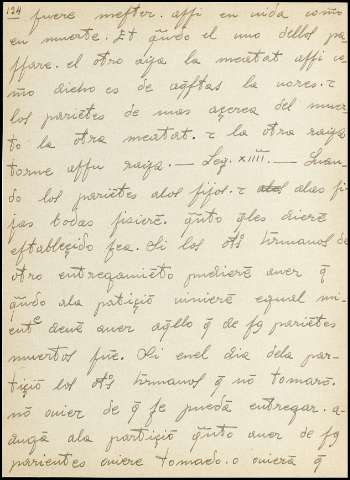 124 fuere mester. assi en uida como
en muerte. Et q̃ndo el uno dellos pa-
ssare. el otro aya la meatat assi co-
mo dicho es de agestas la uores. τ
los pariẽtes de mas açerca del muer-
to la otra meatat. τ la otra rayz
torne assu rayza. — Ley. xiiii. — Quan-
do los pariẽtes alos fijos. τ alas fi-
jas todas fizierẽ. q̃nto q̃les dierẽ
estableçido sea. Si los otõs hrmanos de
otro entregamiẽto pudierẽ auer q̃
q̃ndo ala patiçiõ uinierẽ egual mi-
entᵉ deuẽ auer aq̃llo q̃ de sꝯ pariẽtes
muertos fuẽ. Si enel dia dela par-
tiçiõ los otõs hrmanos q̃ nõ tomarõ.
nõ ouier de q̃ se puedã entregar. a-
duga ala partiçiõ q̃nto auer de sꝯ
parientes ouiere tomado. o ouierã q̃